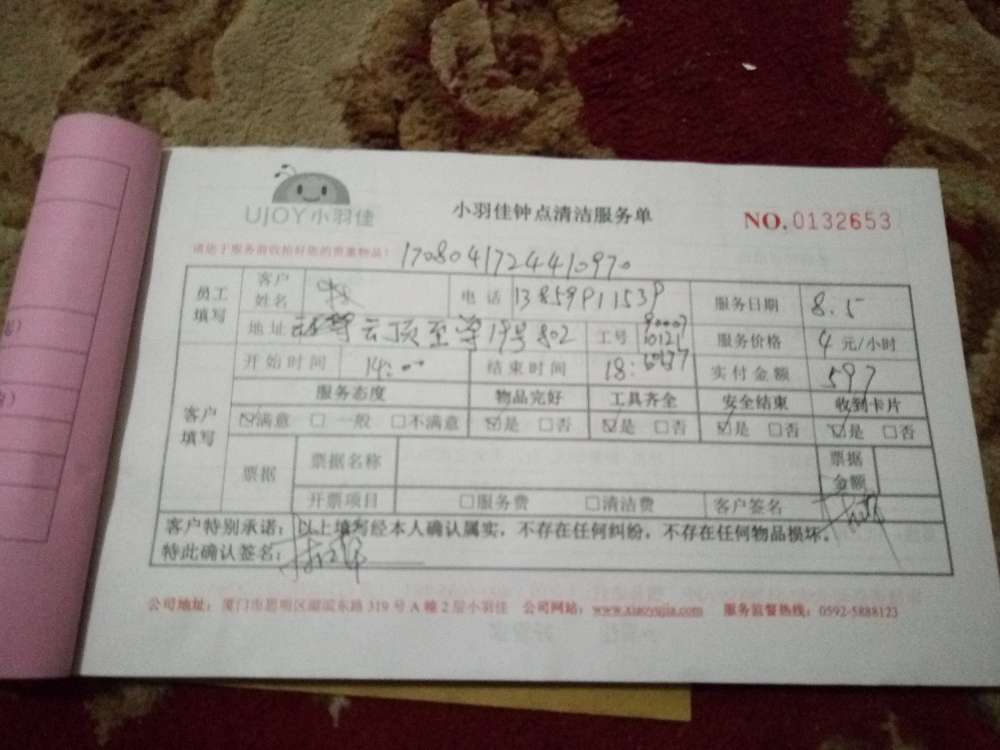 UJOY小羽佳
小羽佳钟点清洁服务单
NO.0132653
请您于服务前收拾好您的贵重物品!
1708041724410970
员工填写 客户姓名 电话 服务日期 8.5
地址 云顶至尊19号802 工号 90007 服务价格 4 元/小时
开始时间 14:00 结束时间 18: 实付金额 597
客户填写 服务态度 物品完好 工具齐全 安全结束 收到卡片
☑满意 □一般 □不满意 ☑是 □否 ☑是 □否 ☑是 □否 ☑是 □否
票据 票据名称 票据金额
开票项目 □服务费 □清洁费 客户签名
客户特别承诺:以上填写经本人确认属实,不存在任何纠纷,不存在任何物品损坏。
特此确认签名:
公司地址:厦门市思明区湖滨东路 319 号 A 幢 2 层小羽佳 公司网站:www.xiaoyujia.com 服务监督热线:0592-5888123